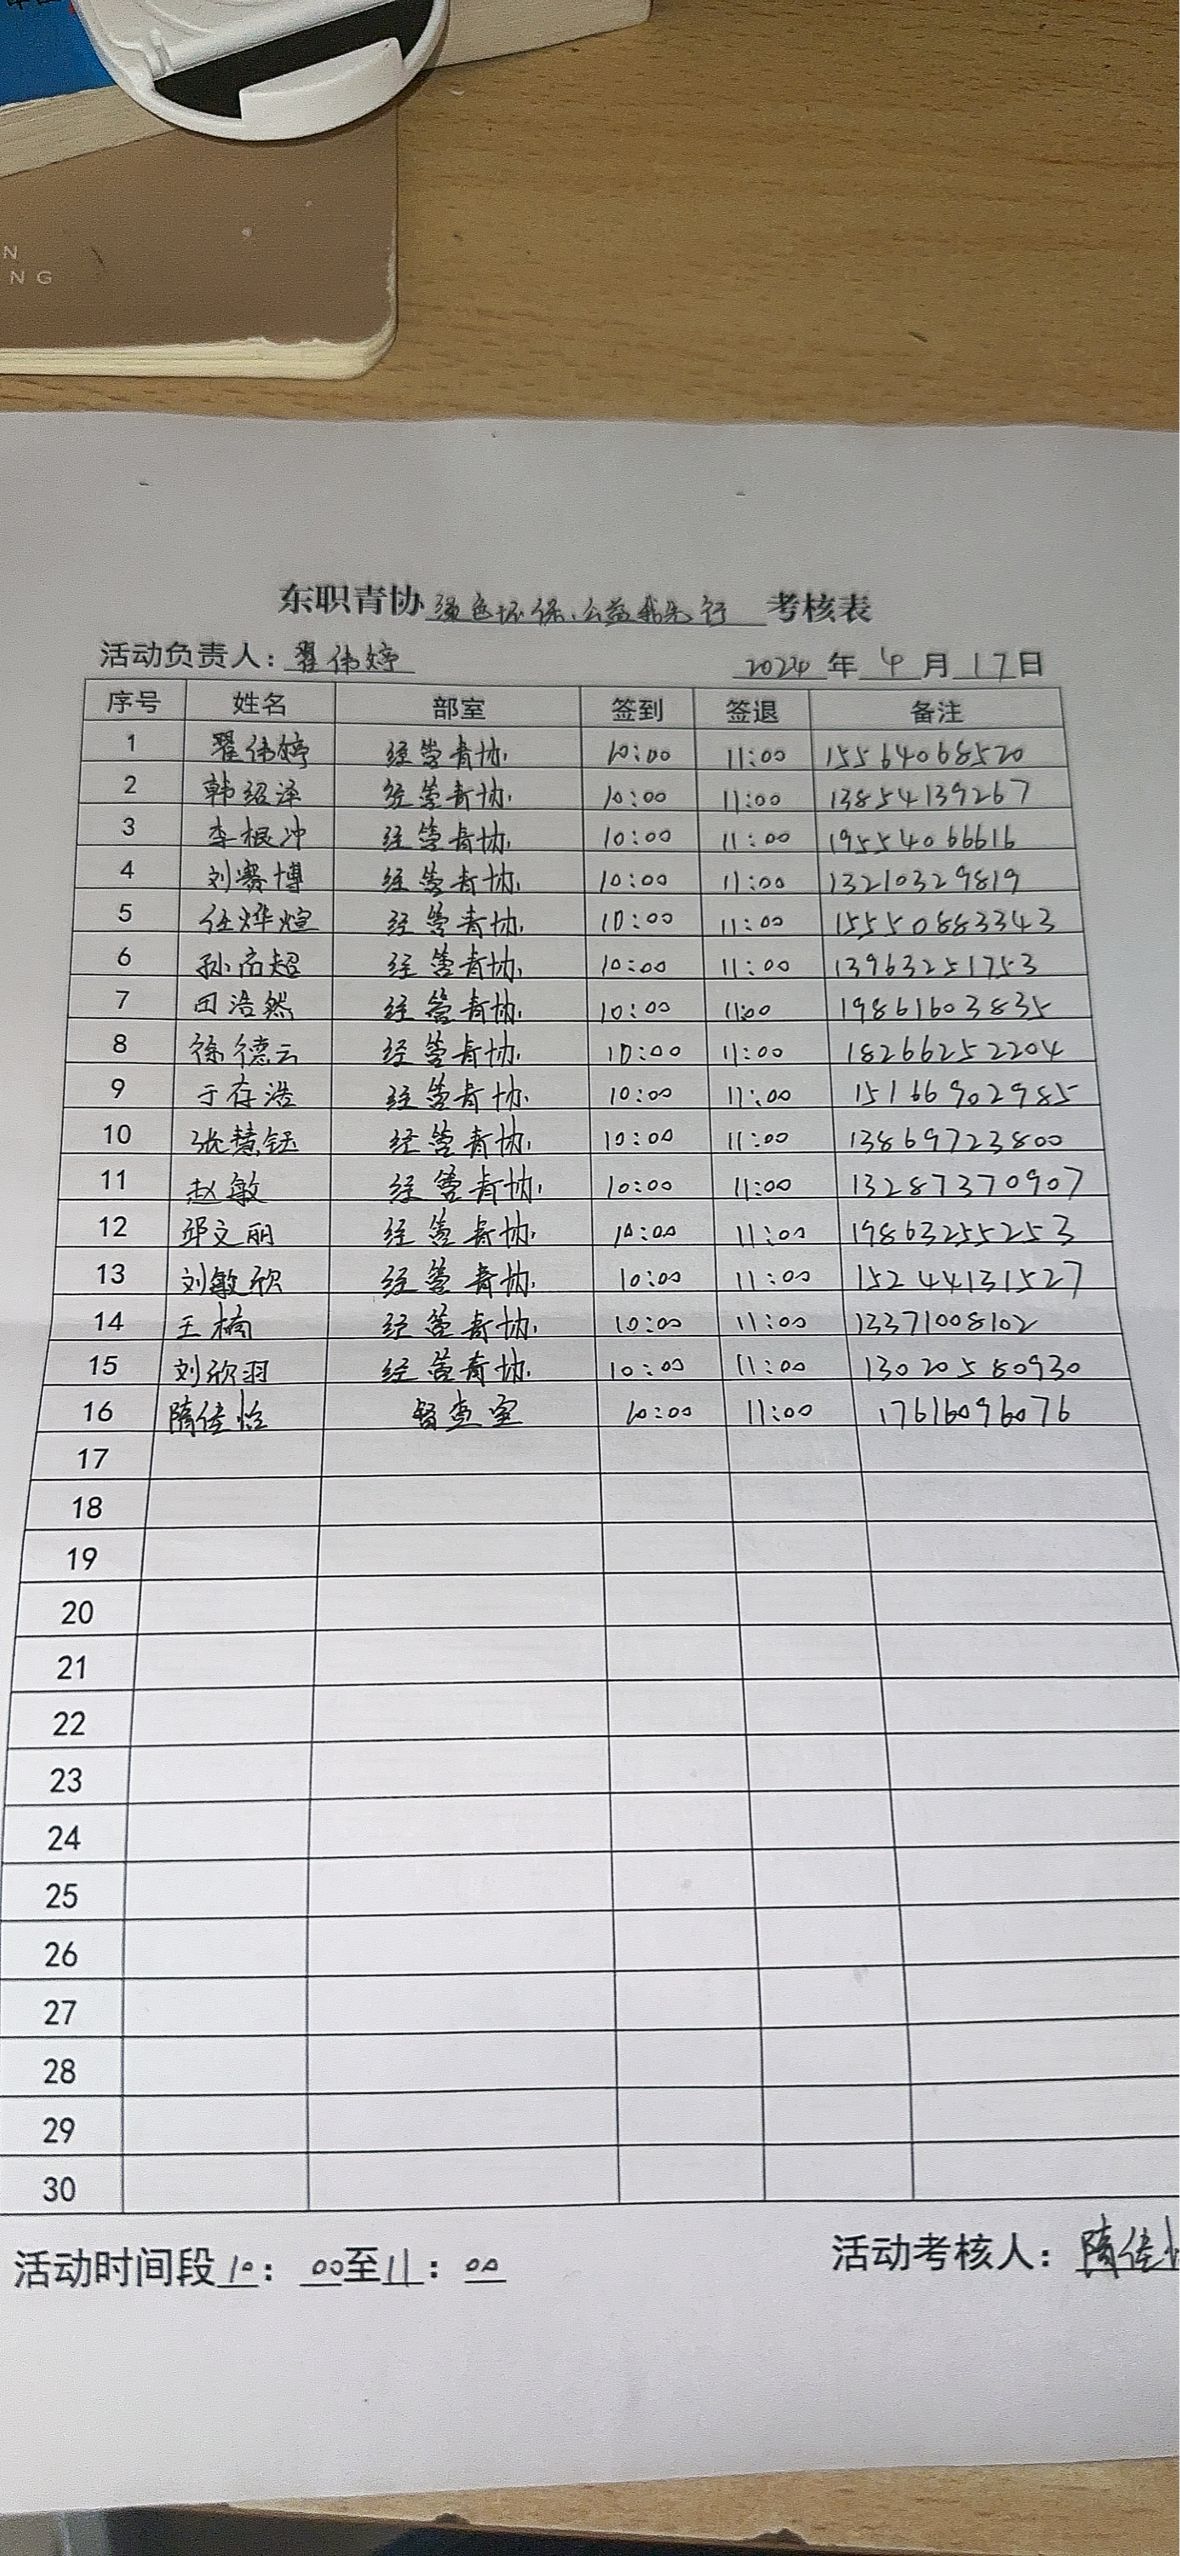 N
NG
东职青协绿色环保、公益我先行考核表
活动负责人：翟伟婷 2024年4月17日
序号 姓名 部室 签到 签退 备注
1 翟伟婷 经管青协 10:00 11:00 15564068520
2 韩绍泽 经管青协 10:00 11:00 13854139267
3 李根冲 经管青协 10:00 11:00 19554066616
4 刘赛博 经管青协 10:00 11:00 13210329819
5 任烨煊 经管青协 10:00 11:00 15550883343
6 孙尚超 经管青协 10:00 11:00 13963251753
7 田浩然 经管青协 10:00 11:00 19861603835
8 徐德云 经管青协 10:00 11:00 18266252204
9 于存浩 经管青协 10:00 11:00 15166902985
10 张慧钰 经管青协 10:00 11:00 13869723800
11 赵敏 经管青协 10:00 11:00 13287370907
12 邱文丽 经管青协 10:00 11:00 19863255253
13 刘敏欣 经管青协 10:00 11:00 15244131527
14 王楠 经管青协 10:00 11:00 13371008102
15 刘欣羽 经管青协 10:00 11:00 13020580930
16 隋佳怡 督查室 10:00 11:00 17616096076
17
18
19
20
21
22
23
24
25
26
27
28
29
30
活动时间段10：00至11：00 活动考核人：隋佳